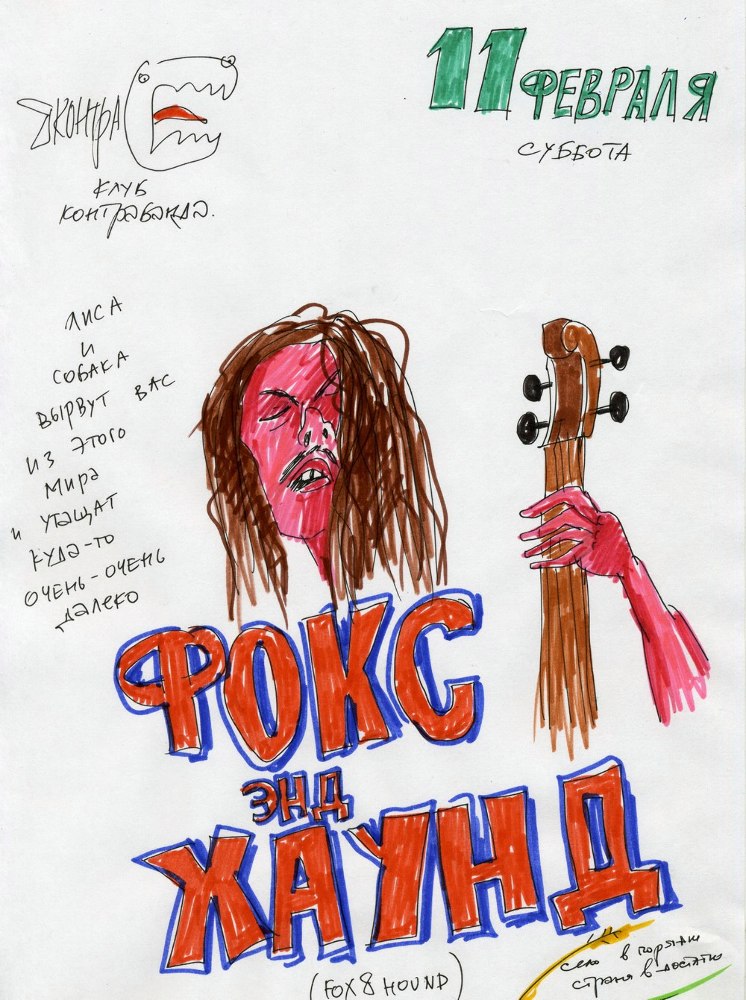 ЯКОНТРА
КЛУБ
КОНТРАБАНДА.
11 ФЕВРАЛЯ
СУББОТА
ЛИСА
И
СОБАКА
ВЫРВУТ ВАС
ИЗ ЭТОГО
МИРА
И УТАЩАТ
КУДА-ТО
ОЧЕНЬ-ОЧЕНЬ
ДАЛЕКО
ФОКС
ЭНД
ХАУНД
(FOX & HOUND)
село в порядке
страна в достатке